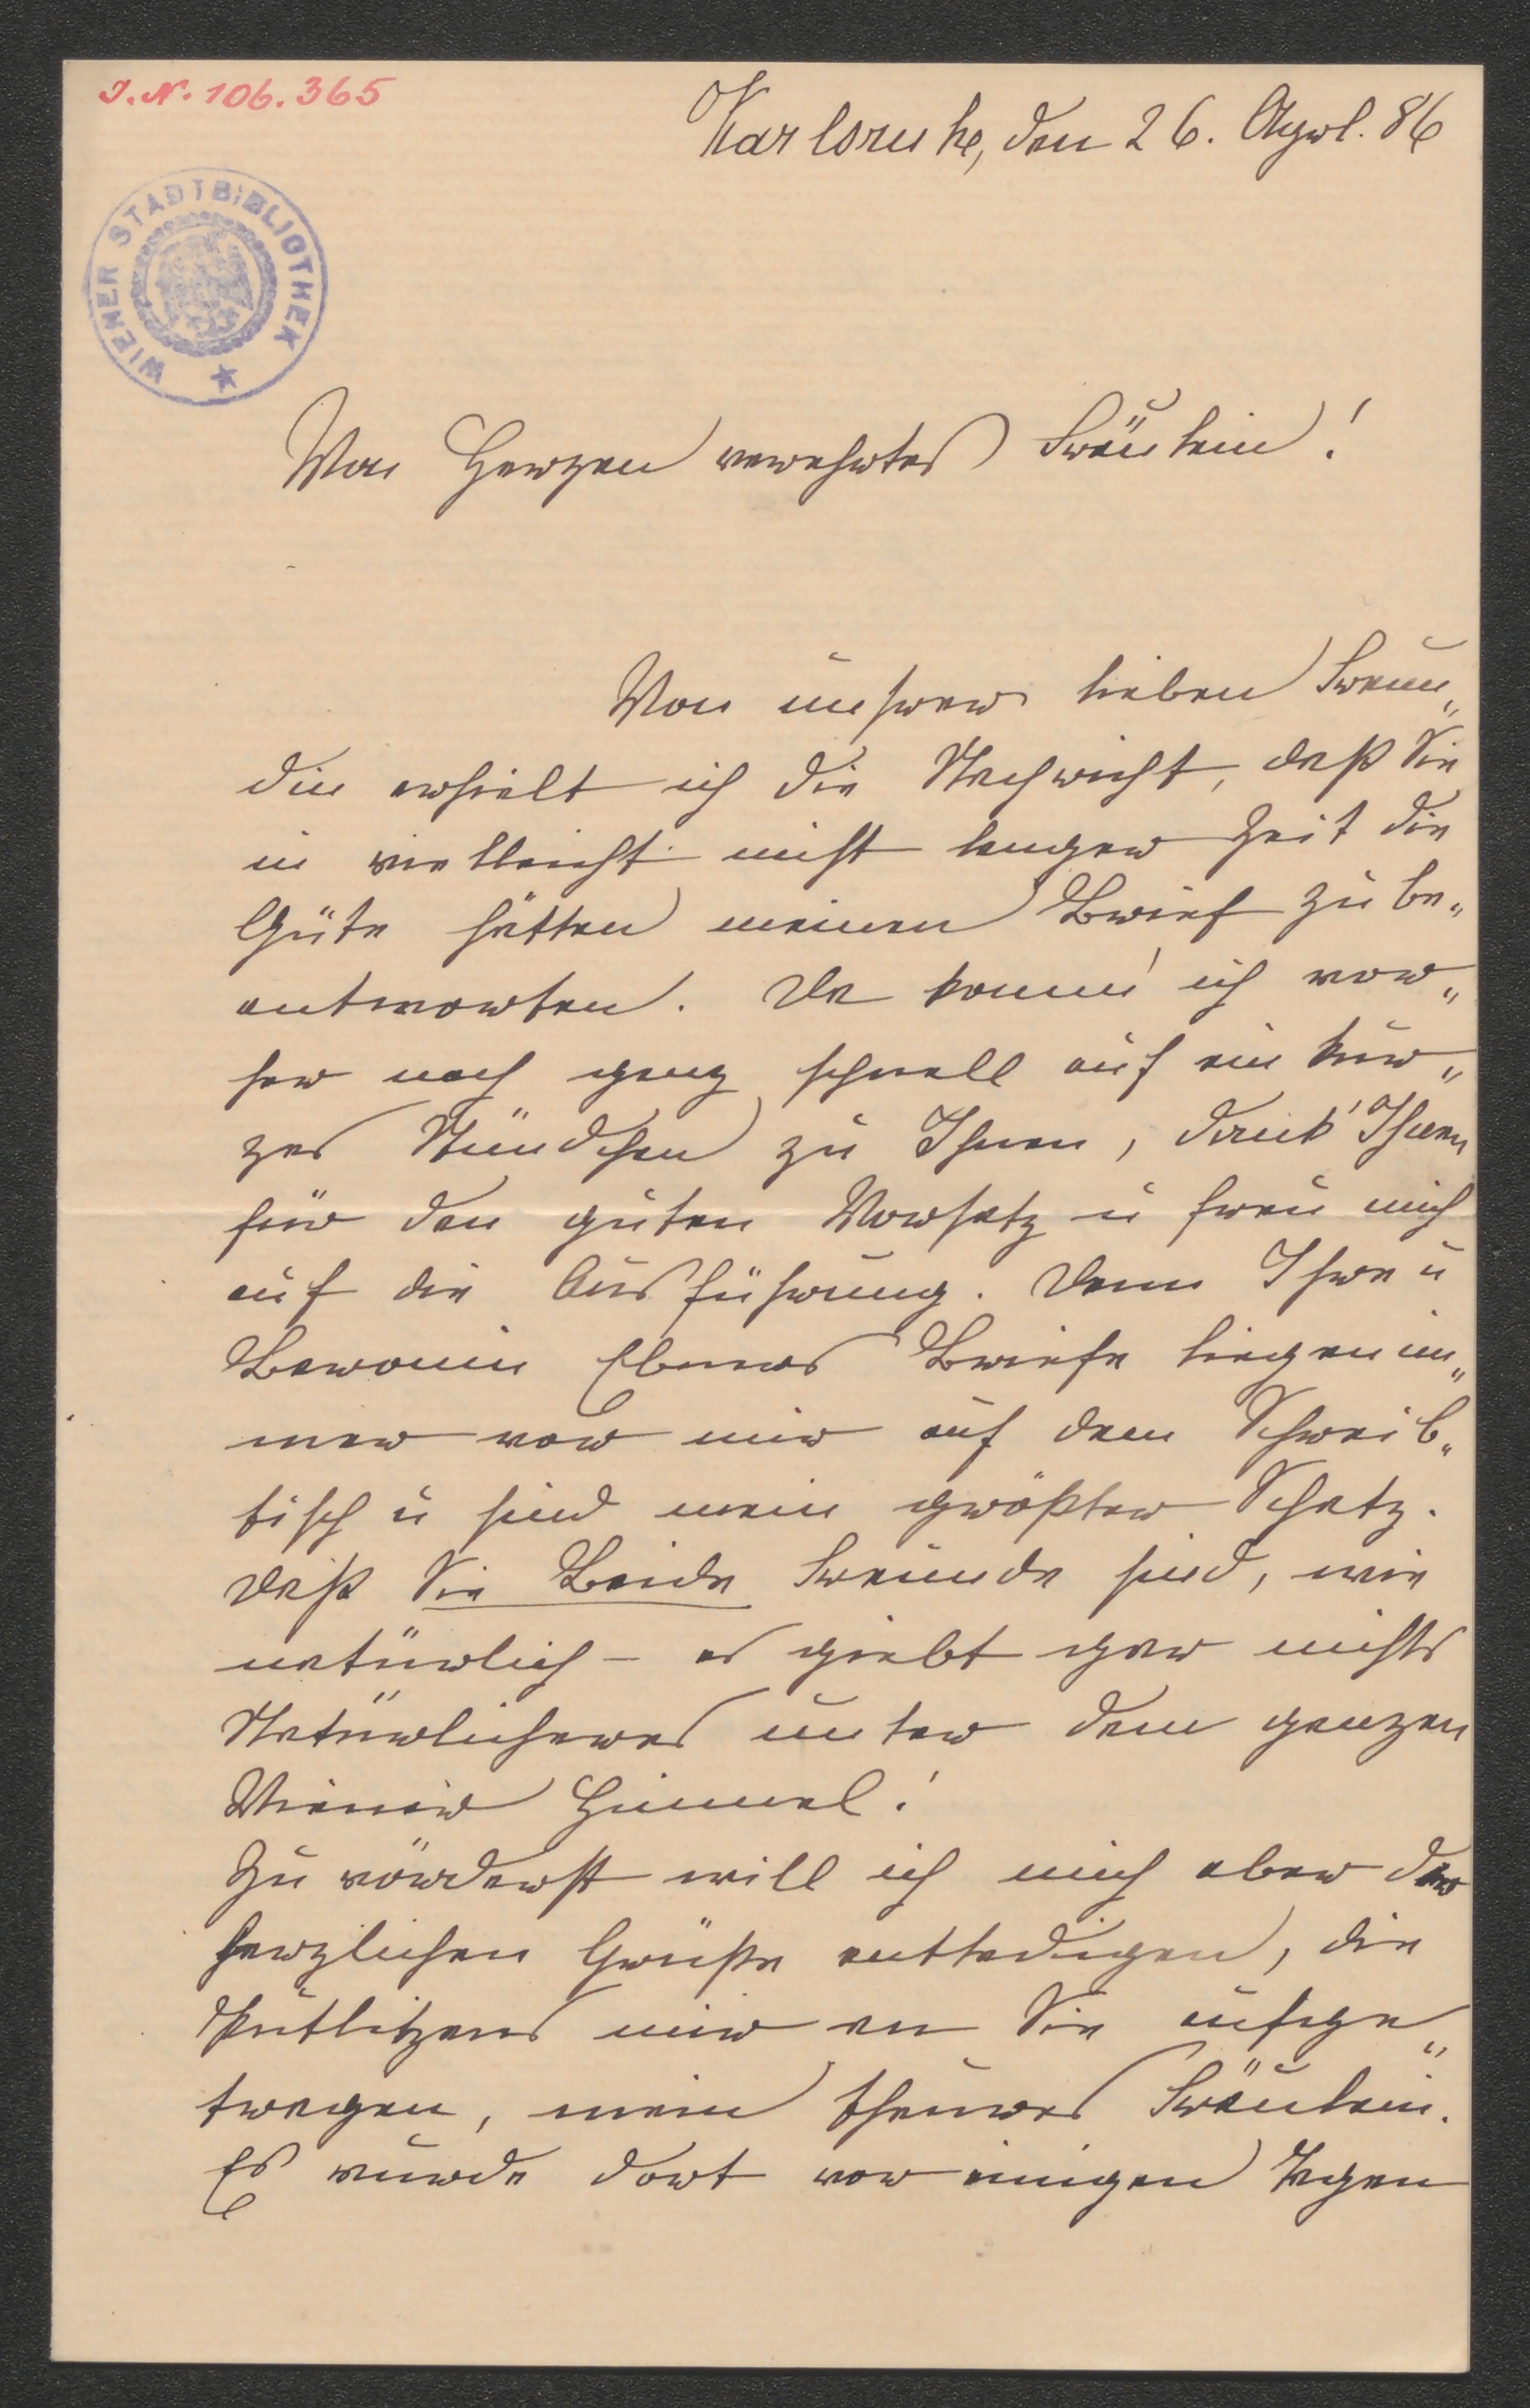 I.N. 106.365
Karlsruhe, den 26. Apr1l. 86
WIENER STADTBIBLIOTHEK
Von Herzen verehrtes Fräulein!
Von unsrer lieben Freun„
din erhielt ich die Nachricht, daß Sie
in vielleicht nicht langer Zeit die
Güte hätten meinen Brief zu be„
antworten. Da komm' ich vor„
her noch ganz schnell auf ein kur„
zes Stündchen zu Ihnen, dank' Ihnen
für den guten Vorsatz u freu mich
auf die Ausführung. Denn Ihre u
Baronin Ebners Briefe liegen im„
mer vor mir auf dem Schreib„
tisch u sind mein größter Schatz.
Daß Sie Beide Freunde sind, wie
natürlich – es giebt gar nichts
Natürlicheres unter dem ganzen
Wiener Himmel!
Zu vörderst will ich mich aber der
herzlichen Grüße entledigen, die
Putlitzens mir an Sie aufge„
tragen, mein theures Fräulein.
Es wurde dort vor einigen Tagen